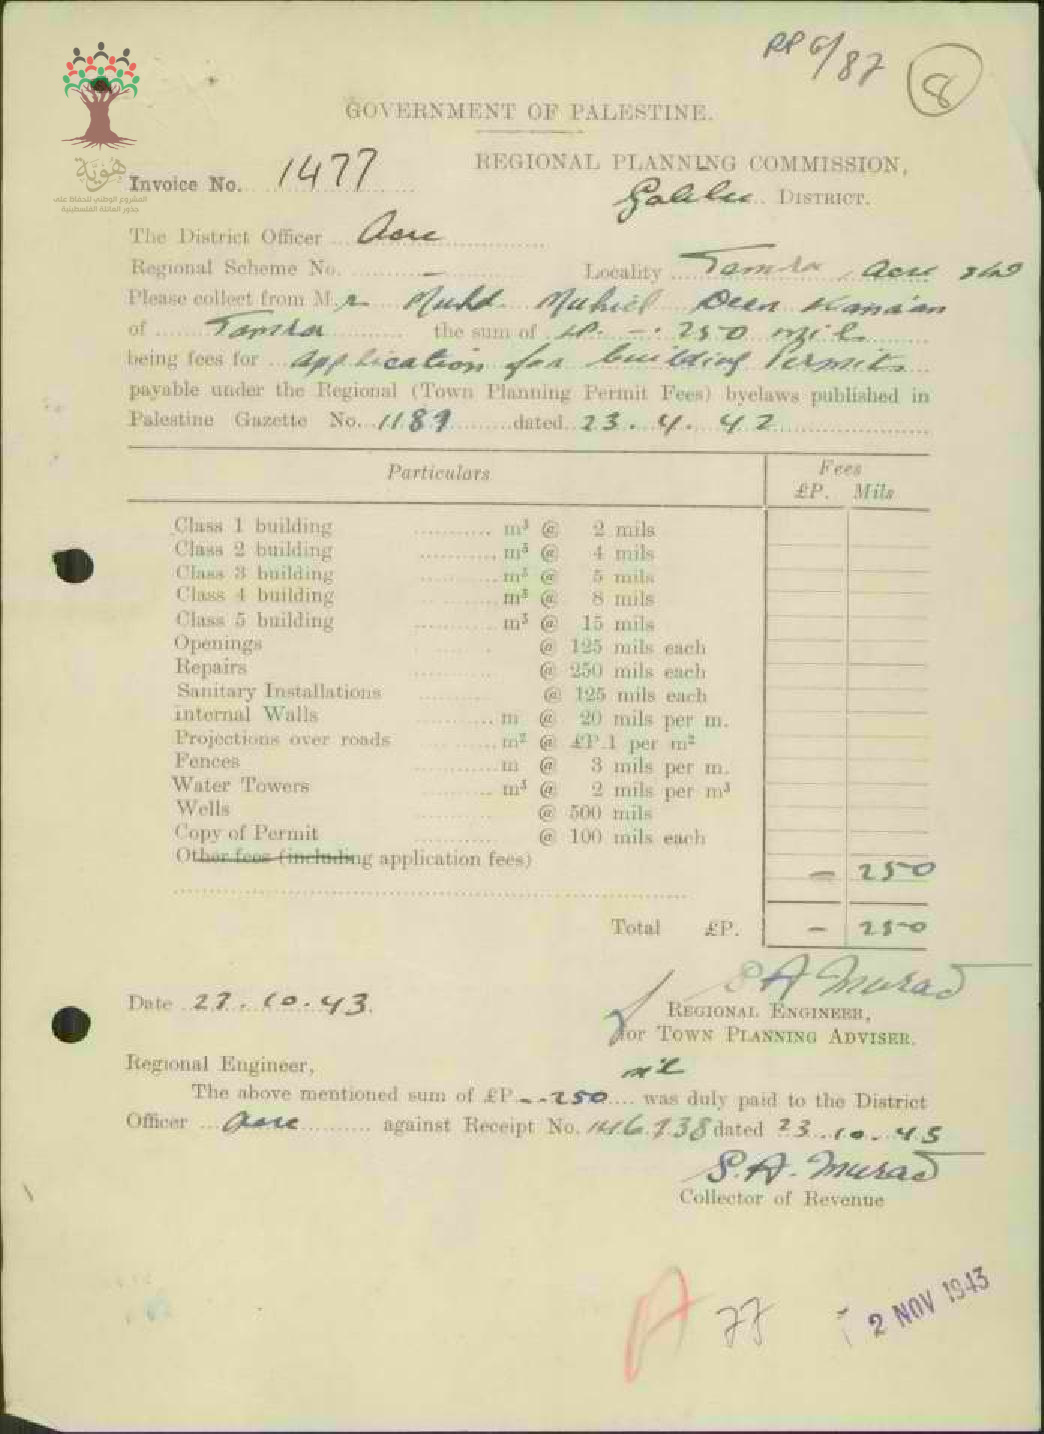 RP 6/87
8
GOVERNMENT OF PALESTINE.
هُويَّة
المشروع الوطني للحفاظ على
جذور العائلة الفلسطينية
REGIONAL PLANNING COMMISSION,
Invoice No. 1477
Galilee DISTRICT.
The District Officer Acre
Regional Scheme No. — Locality Tamra Acre
Please collect from Mr Muhd Muhiel Deen Kana'an
of Tamra the sum of LP. –. 250 mils
being fees for application for building Permits
payable under the Regional (Town Planning Permit Fees) byelaws published in
Palestine Gazette No. 1189 dated 23.4.42
Particulars Fees
£P. Mils
Class 1 building m³ @ 2 mils
Class 2 building m³ @ 4 mils
Class 3 building m³ @ 5 mils
Class 4 building m³ @ 8 mils
Class 5 building m³ @ 15 mils
Openings @ 125 mils each
Repairs @ 250 mils each
Sanitary Installations @ 125 mils each
Internal Walls m @ 20 mils per m.
Projections over roads m² @ £P.1 per m²
Fences m @ 3 mils per m.
Water Towers m³ @ 2 mils per m³
Wells @ 500 mils
Copy of Permit @ 100 mils each
Other fees (including application fees) — 250
Total £P. — 250
S A Murad
Date 23.10.43.
REGIONAL ENGINEER,
for TOWN PLANNING ADVISER.
Regional Engineer,
mil
The above mentioned sum of £P. -.250 was duly paid to the District
Officer Acre against Receipt No. 146738 dated 23.10.43
S.A. Murad
Collector of Revenue
A 77
2 NOV 1943